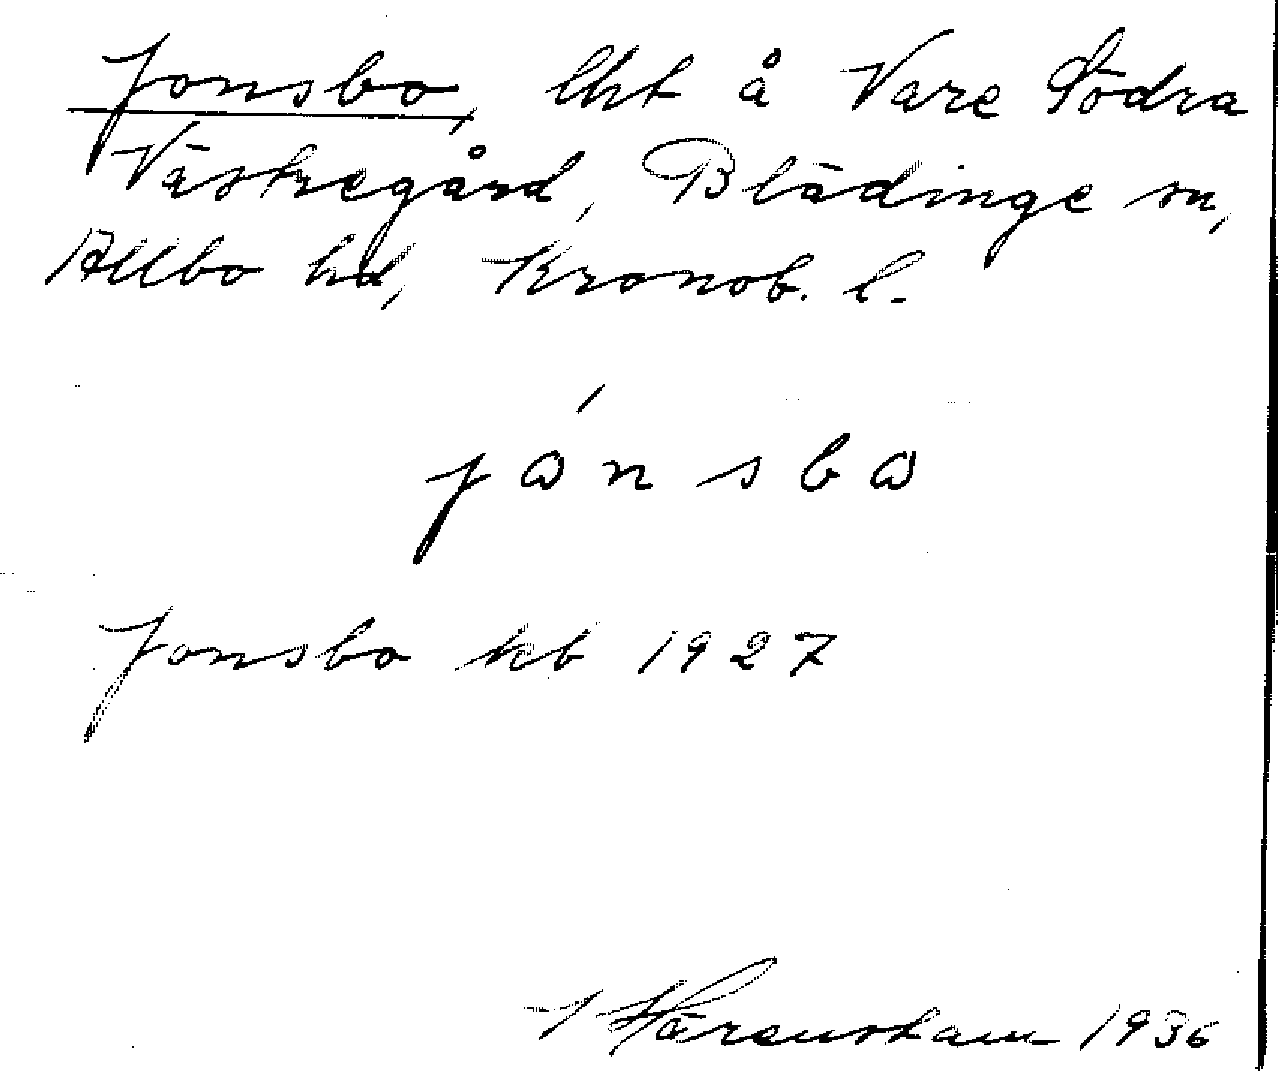 Jonsbo, lht å Vare Södra
Västregård, Blädinge sn,
Allbo hd, Kronob. l.
jónsbo
Jonsbo kb 1927
1936